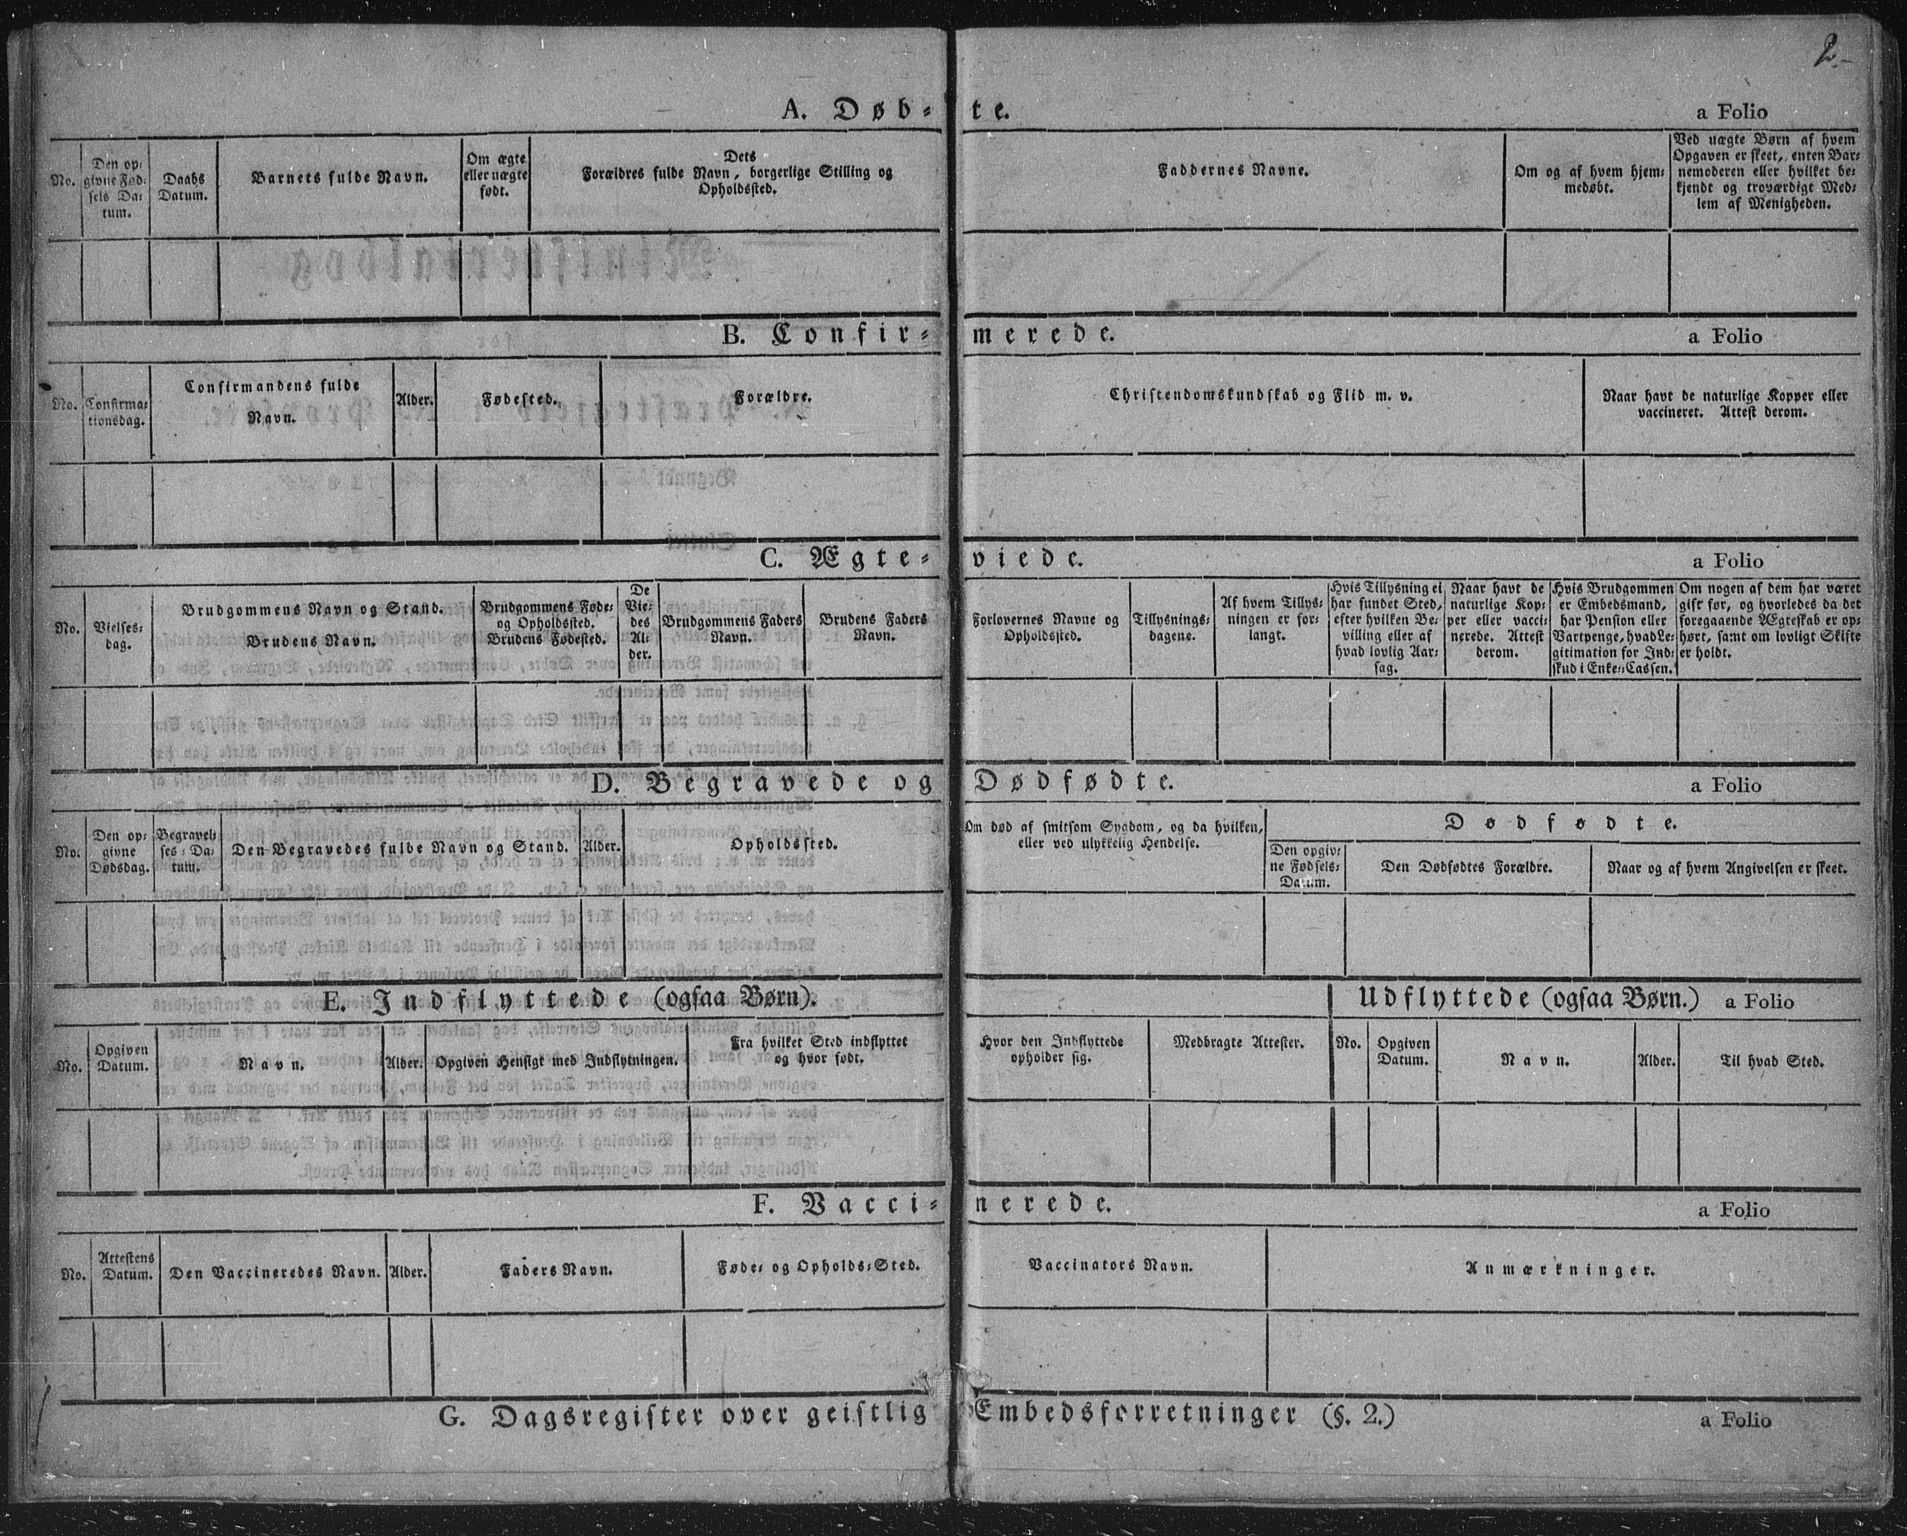 2.
A. Døb- te. a Folio
No.
Den op-
givne Fød-
sels Da-
tum.
Daabs
Datum.
Barnets fulde Navn.
Om ægte
eller uægte
født.
Dets
Forældres fulde Navn, borgerlige Stilling og
Opholdssted.
Faddernes Navne.
Om og af hvem hjem-
medøbt.
Ved uægte Børn af hvem
Opgaven er skeet, enten Bar-
nemoderen eller hvilket be-
kjendt og troværdigt Med-
lem af Menigheden.
B. Confir- merede. a Folio
No.
Confirma-
tionsdag.
Confirmandens fulde
Navn.
Alder.
Fødested.
Forældre.
Christendomskundskab og Flid m. v.
Naar havt de naturlige Kopper eller
vaccineret. Attest derom.
C. Ægte- viede. a Folio
No.
Vielses-
dag.
Brudgommens Navn og Stand.
Brudens Navn.
Brudgommens Føde-
og Opholdssted.
Brudens Fødested.
De
Vie-
des
Al-
der.
Brudgommens Faders
Navn.
Brudens Faders
Navn.
Forlovernes Navne og
Opholdssted.
Tillysnings-
dagene.
Af hvem Tillys-
ningen er for-
langt.
Hvis Tillysning ei
har fundet Sted,
efter hvilken Be-
villing eller af
hvad lovlig Aar-
sag.
Naar havt de
naturlige Kop-
per eller vacci-
nerede. Attest
derom.
Hvis Brudgommen
er Embedsmand,
har Pension eller
Vartpenge, hvad Le-
gitimation for Ind-
skud i Enke-Cassen.
Om nogen af dem har været
gift før, og hvorledes da det
foregaaende Ægteskab er op-
hørt, samt om lovligt Skifte
er holdt.
D. Begravede og Dødfødte. a Folio
No.
Den op-
givne
Dødsdag.
Begravel-
ses-Da-
tum.
Den Begravedes fulde Navn og Stand.
Alder.
Opholdssted.
Om død af smitsom Sygdom, og da hvilken,
eller ved ulykkelig Hendelse.
Dødfødte.
Den opgiv-
ne Fødsels-
Datum.
Den Dødfødtes Forældre.
Naar og af hvem Angivelsen er skeet.
E. Indflyttede (ogsaa Børn). Udflyttede (ogsaa Børn.) a Folio
No.
Opgiven
Datum.
Navn.
Alder.
Opgiven Hensigt med Indflytningen.
Fra hvilket Sted indflyttet
og hvor født.
Hvor den Indflyttede
opholder sig.
Medbragte Attester.
No.
Opgiven
Datum.
Navn.
Alder.
Til hvad Sted.
F. Vacci- nerede. a Folio
No.
Attestens
Datum.
Den Vaccineredes Navn.
Alder.
Faders Navn.
Føde- og Opholds-Sted.
Vaccinators Navn.
Anmærkninger.
G. Dagsregister over geistlig Embedsforretninger (§. 2.) a Folio